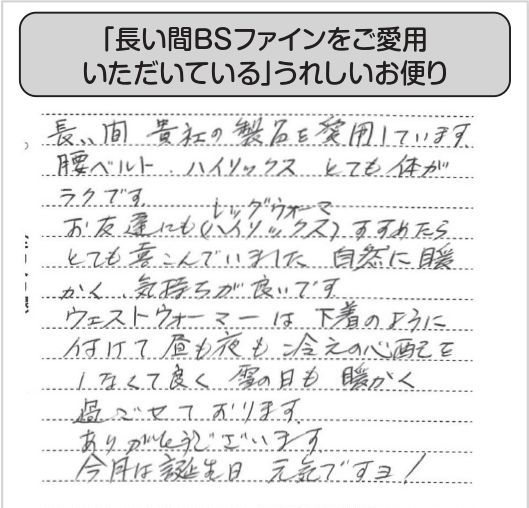 「長い間BSファインをご愛用
いただいている」うれしいお便り
長い間 貴社の製品を愛用しています。
腰ベルト、ハイソックス とても体が
ラクです。
レッグウォーマ
お友達にも(ハイソックス)すすめたら
とても喜こんでいました 自然に暖
かく、気持ちが良いです
ウェストウォーマーは下着のように
付けて昼も夜も冷えの心配を
しなくて良く 雪の日も 暖かく
過ごせております。
ありがとうございます。
今月は誕生日 元気ですヨ!